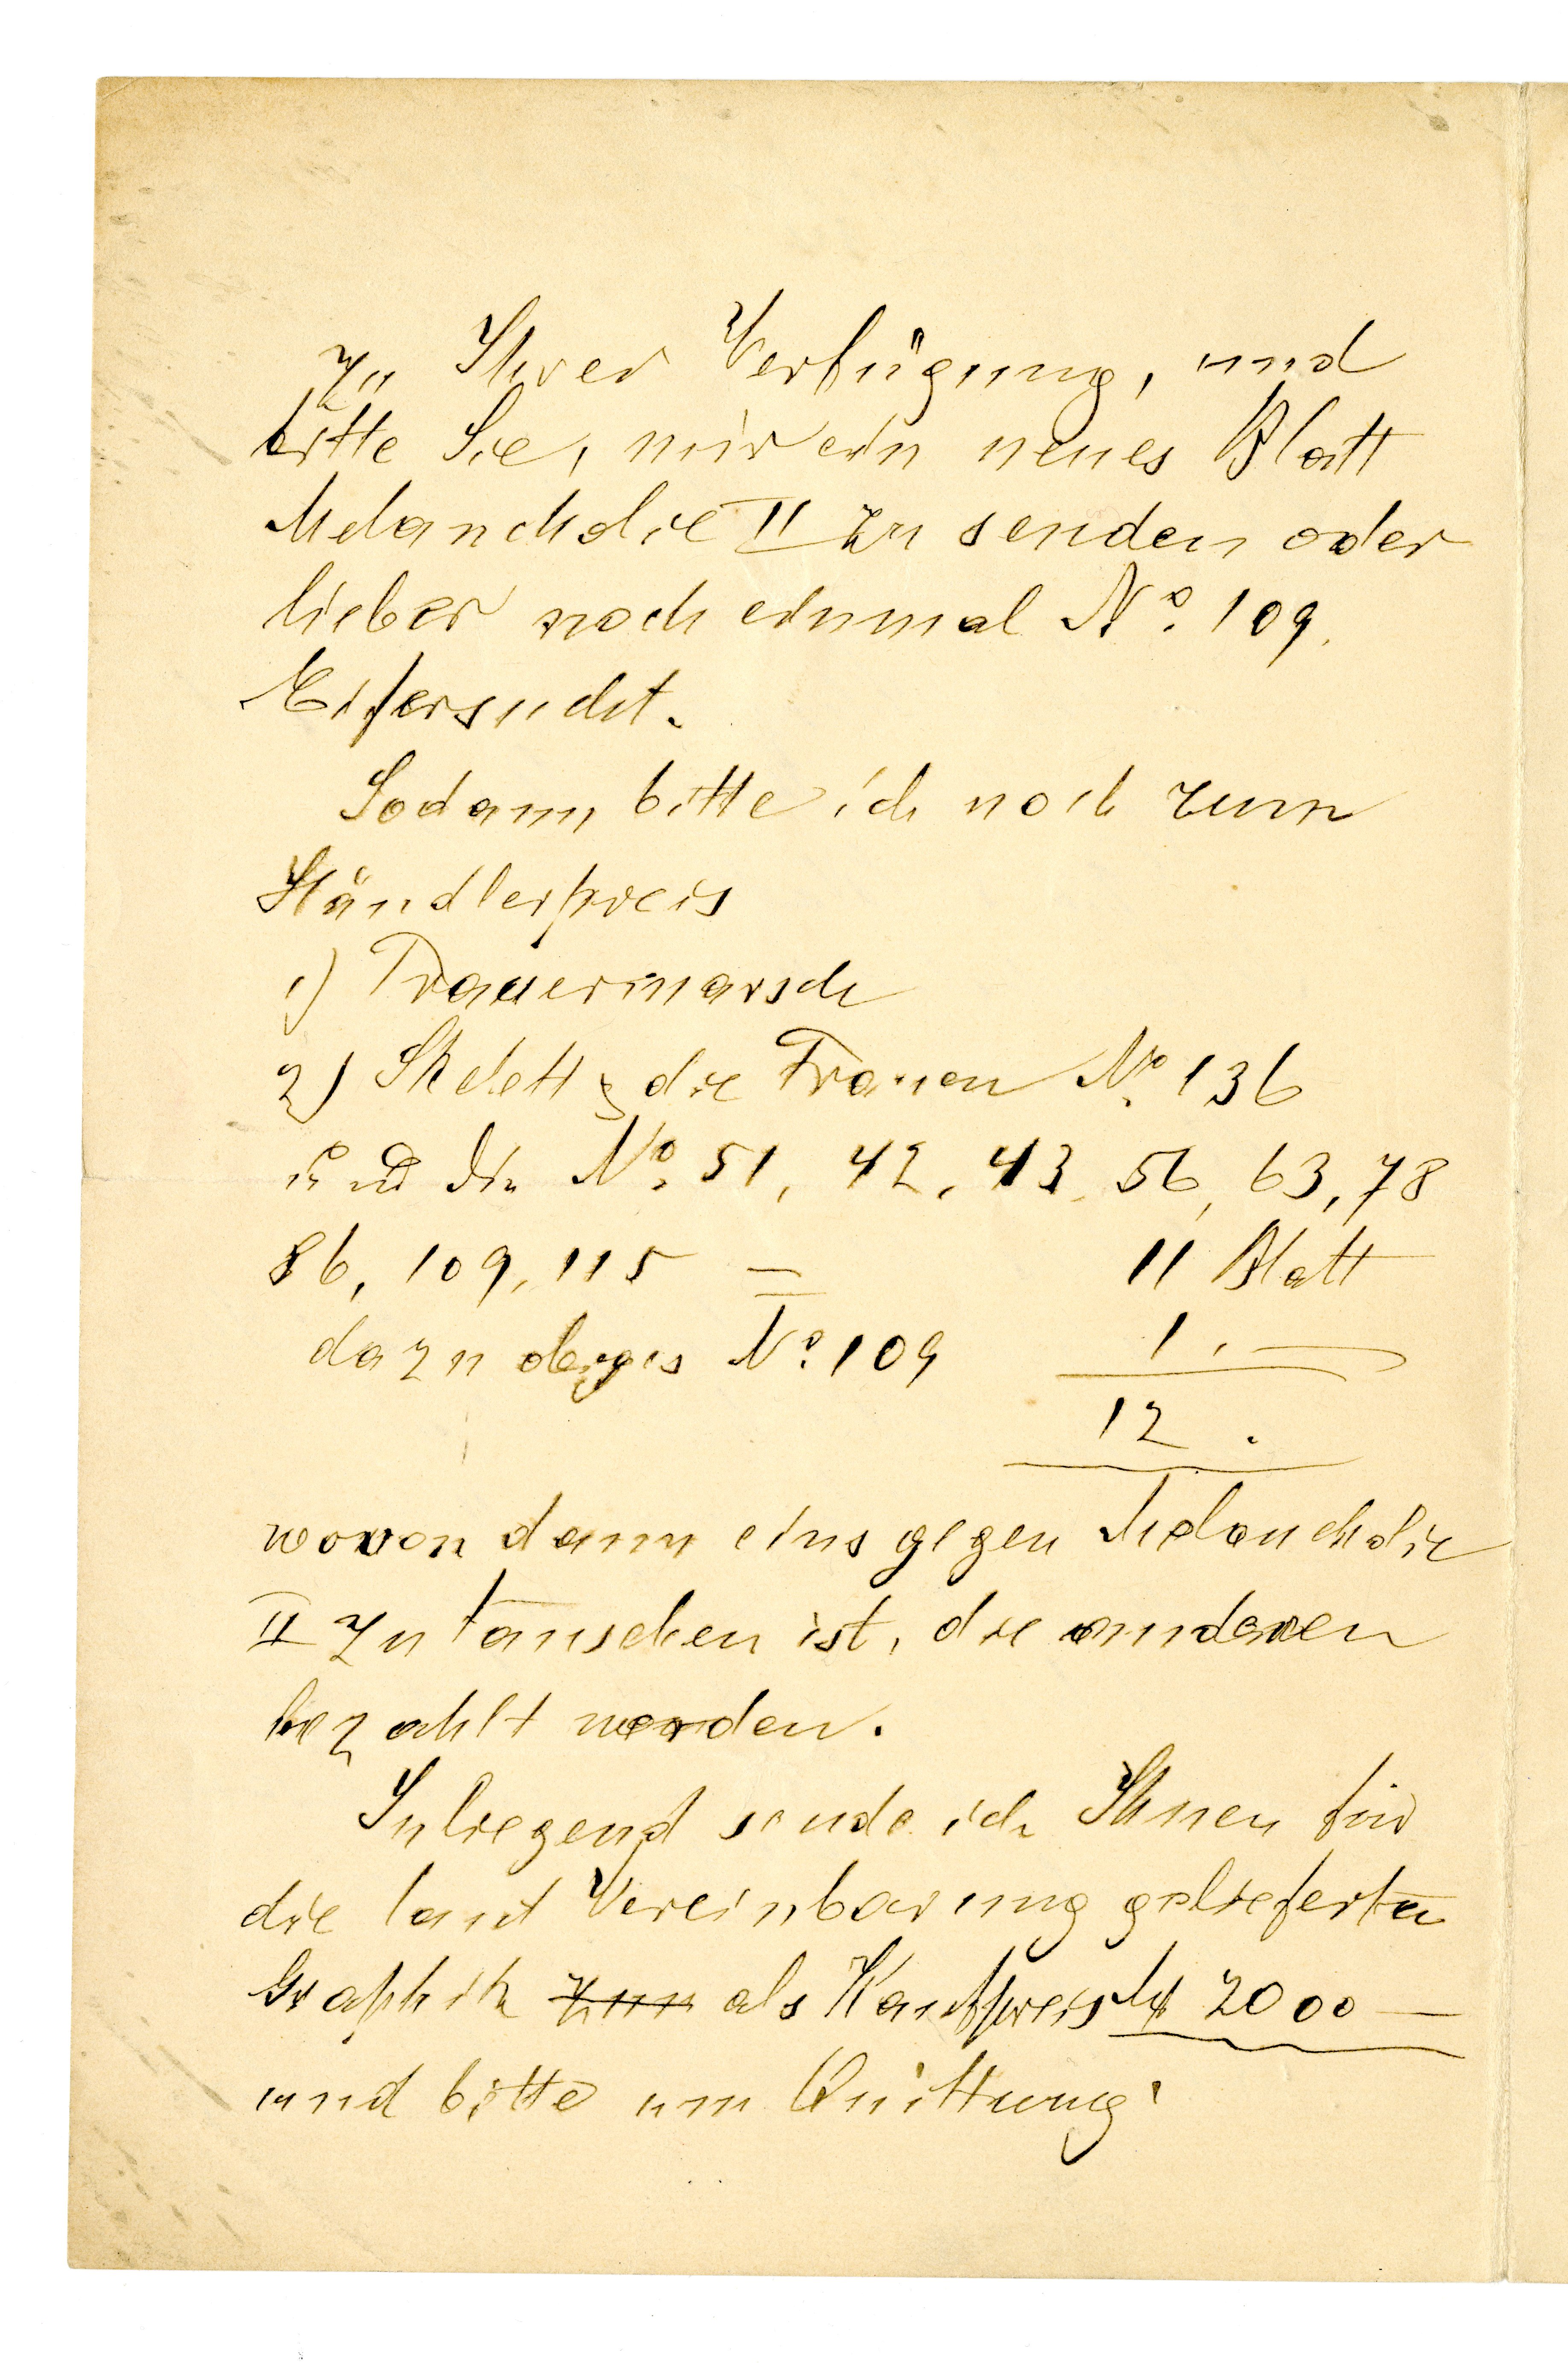 zu Ihrer Verfügung, und
bitte Sie, mir ein neues Blatt
Melancholie II zu senden oder
lieber noch einmal No. 109.
Eifersucht.
Sodann bitte ich noch zum
Händlerpreis
1) Trauermarsch
2) Skelett & die Frauen No. 136
und die No. 51, 42, 43, 56, 63, 78
86, 109, 115 = 11 Blatt
dazu obiges No. 109 1. —
12 .
wovon dann eins gegen Melancholie
II zu tauschen ist, die anderen
bezahlt werden.
Inliegend sende ich Ihnen für
die laut Vereinbarung gelieferten
Graphik zum als Kaufpreis M 2000 —
und bitte um Quittung.